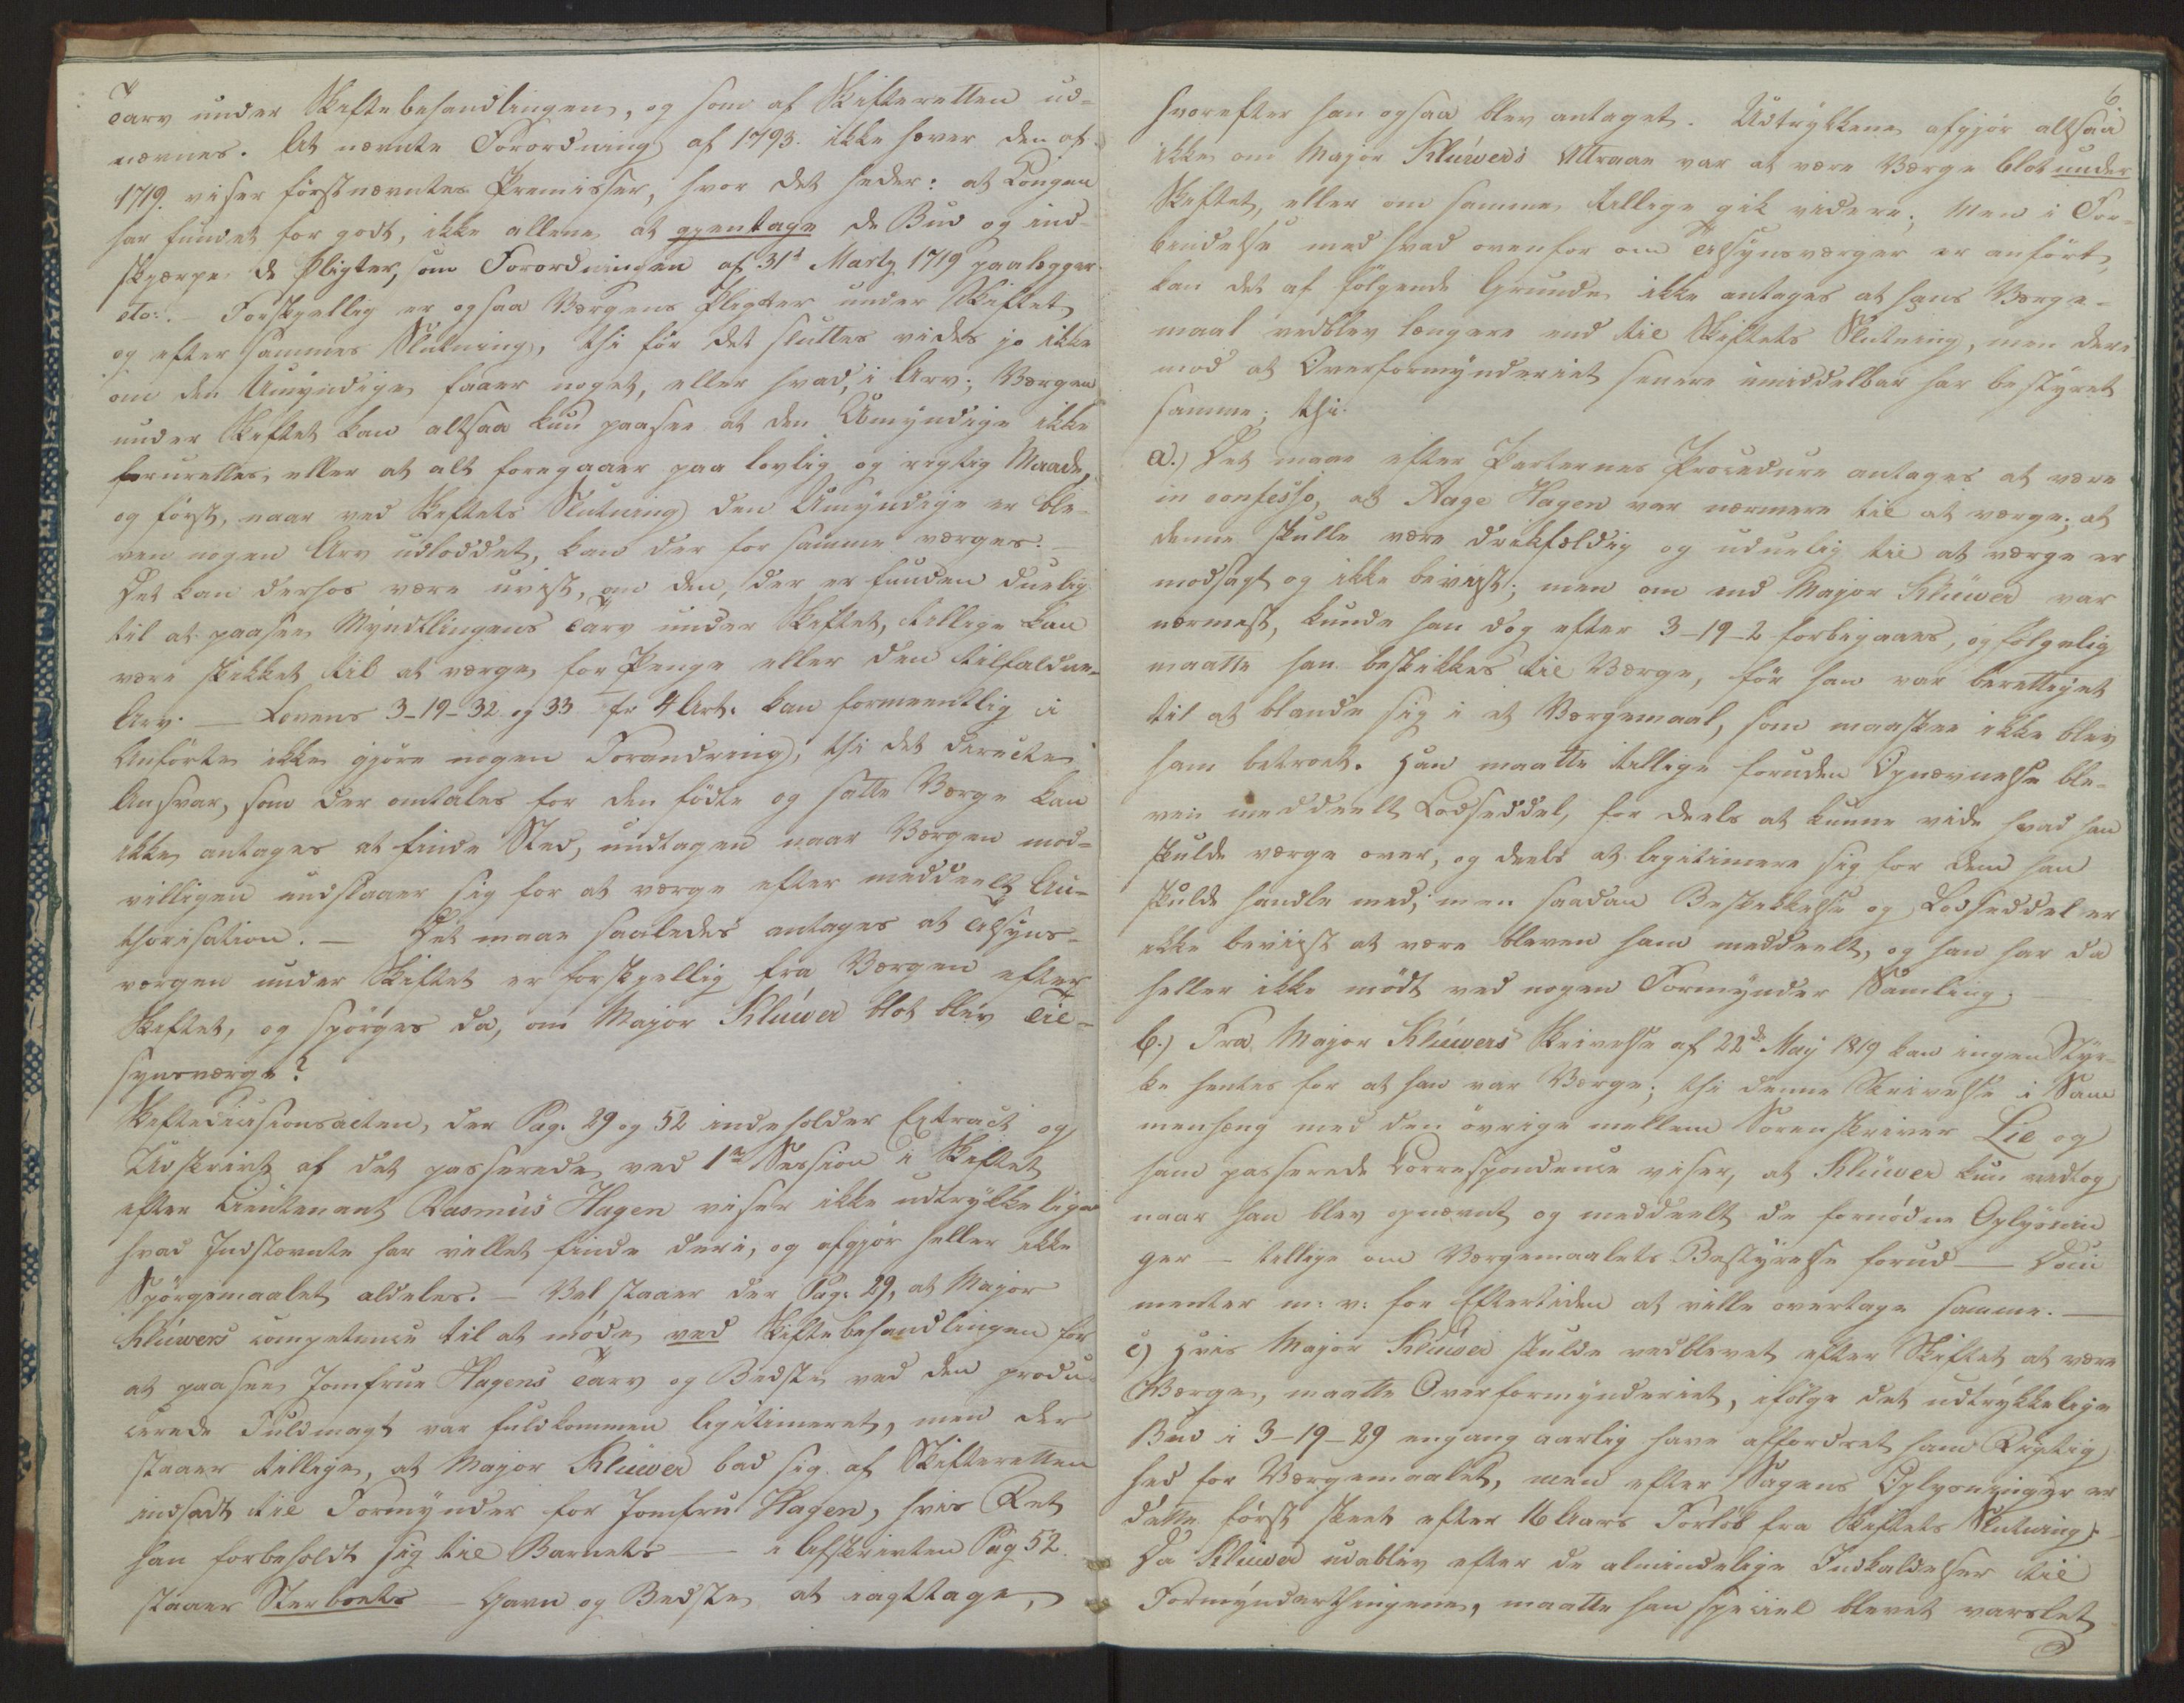 Tarv under Skiftebehandlingen, og som af Skifteretten ud-
nævnes. At nævnte Forordning af 1793. ikke hæver den af
1719. viser førstnævntes Premisser, hvor det heder: at Kongen
har fundet for godt, ikke allene at gjentage de Bud og ind-
skjærpe de Pligter, som Forordningen af 31t Martz 1719 paalægger
etc:. — Forskjellig er ogsaa Værgens Pligter under Skiftet
og efter sammes Slutning, thi før det sluttes vides jo ikke
om den Umyndige faaer noget, eller hvad, i Arv; Værgen
under Skiftet kan altsaa kun paasee at den Umyndige ikke
forurettes, eller at alt foregaaer paa lovlig og rigtig Maade,
og først, naar ved Skiftets Slutning den Umyndige er ble-
ven nogen Arv udloddet, kan der for samme værges. —
Det kan derhos være uvist, om den, der er funden duelig
til at paasee Myndtlingens Tarv under Skiftet, tillige kan
være skikket til at værge for Penge eller den tilfaldne
Arv. — Lovens 3-19-32 og 33 fr 4 Art. kan formeentlig i
Anførte ikke gjøre nogen Forandring; thi det directe
Ansvar, som der omtales for den fødte og satte Værge kan
ikke antages at finde Sted, undtagen naar Værgen mod-
villigen undslaaer sig for at værge efter meddeelt Au-
thorisation. — Det maae saaledes antages at Tilsyns-
værgen under Skiftet er forskjellig fra Værgen efter
Skiftet, og spørges da, om Major Klüwer blot blev Til-
synsværge?
Skiftedecisionsacten, der Pag. 29 og 52 indeholder Extract og
Udskrivt af det passerede ved 1te Session i Skiftet
efter Lieutenant Rasmus Hagen viser ikke udtrykkeligen
hvad Indstævnte har villet finde deri, og afgjør heller ikke
Spørgsmaalet aldeles. — Vel staaer der Pag. 29, at Major
Klüwers competence til at møde ved Skiftebehandlingen for
at paasee Jomfrue Hagens Tarv og Bedste ved den produ
cerede Fuldmagt var fuldkommen legitimeret, men der
staaer tillige, at Major Klüwer bad sig af Skifteretten
indsadt til Formynder for Jomfru Hagen, hvis Ret
han forbeholdt sig til Barnets — i Afskrivten Pag 52.
staaer Sterboets — Gavn og Bedste at iagttage,
6
hvorefter han ogsaa blev antaget. Udtrykkene afgjør altsaa
ikke om Major Klüwers Attraae var at være Værge blot under
Skiftet, eller om samme tillige gik videre; Men i For-
bindelse med hvad ovenfor om Tilsynsværger er anført,
kan det af følgende Grunde ikke antages at hans Værge-
maal vedblev længere end til Skiftets Slutning, men deri
mod at Overformynderiet senere umiddelbar har bestyret
samme; thi.
a.) Det maae efter Parternes Procedure antages at være
in confesso, at Aage Hagen var nærmere til at værge; at
denne skulle være drikfældig og uduelig til at værge er
modsagt og ikke beviist; men om end Major Klüwer var
nærmest, kunde han dog efter 3-19-2 forbigaaes, og følgelig
maatte han beskikkes til Værge, før han var berettiget
til at blande sig i et Værgemaal, som maaskee ikke blev
ham betroet. Han maatte tillige foruden Opnævnelse ble-
ven meddeelt Lodseddel, for deels at kunne vide hvad han
skulde værge over, og deels at legitimere sig for dem han
skulde handle med; men saadan Beskikkelse og Lodseddel er
ikke beviist at være bleven ham meddeelt, og han har da
heller ikke mødt ved nogen Formynder Samling; —
b.) Fra Major Klüwers Skrivelse af 22de Maj 1819 kan ingen Styr-
ke hentes for at han var Værge; thi denne Skrivelse i Sam
menhæng med den øvrige mellem Sorenskriver Lie og
ham passerede Correspondence viser, at Klüwer kun vedtog
naar han blev opnævnt og meddeelt de fornødne Oplysnin
ger — tillige om Værgemaalets Bestyrelse forud — Docu
menter m: v: for Eftertiden at ville overtage samme. —
c) Hvis Major Klüwer skulde vedblevet efter Skiftet at være
Værge, maatte Overformynderiet, ifølge det udtrykkelige
Bud i 3-19-29 engang aarlig have affordret ham Rigtig
hed for Værgemaalet, men efter Sagens Oplysninger er
dette først skeet efter 16 Aars Forløb fra Skiftets Slutning;
Da Klüwer udablev efter de almindelige Indkaldelser til
Formynderthingene, maatte han speciel blevet varslet